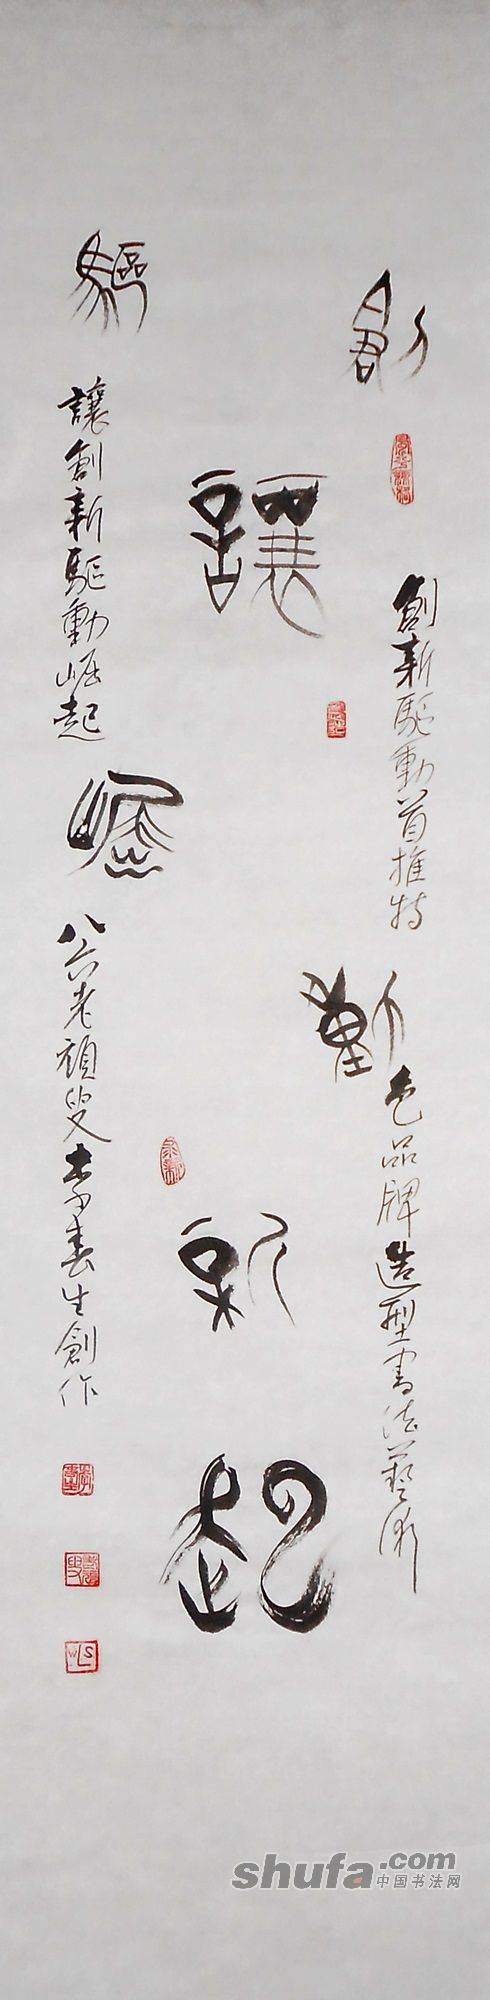 創
驅
讓
動
崛
新
起
創新驅動首推特
色品牌造型書法藝術
讓創新驅動崛起
八六老頑叟李春生創作
shufa.com
中国书法网